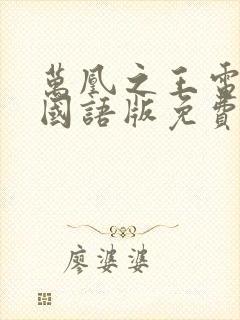 萬凰之王電
國語版免費
廖婆婆